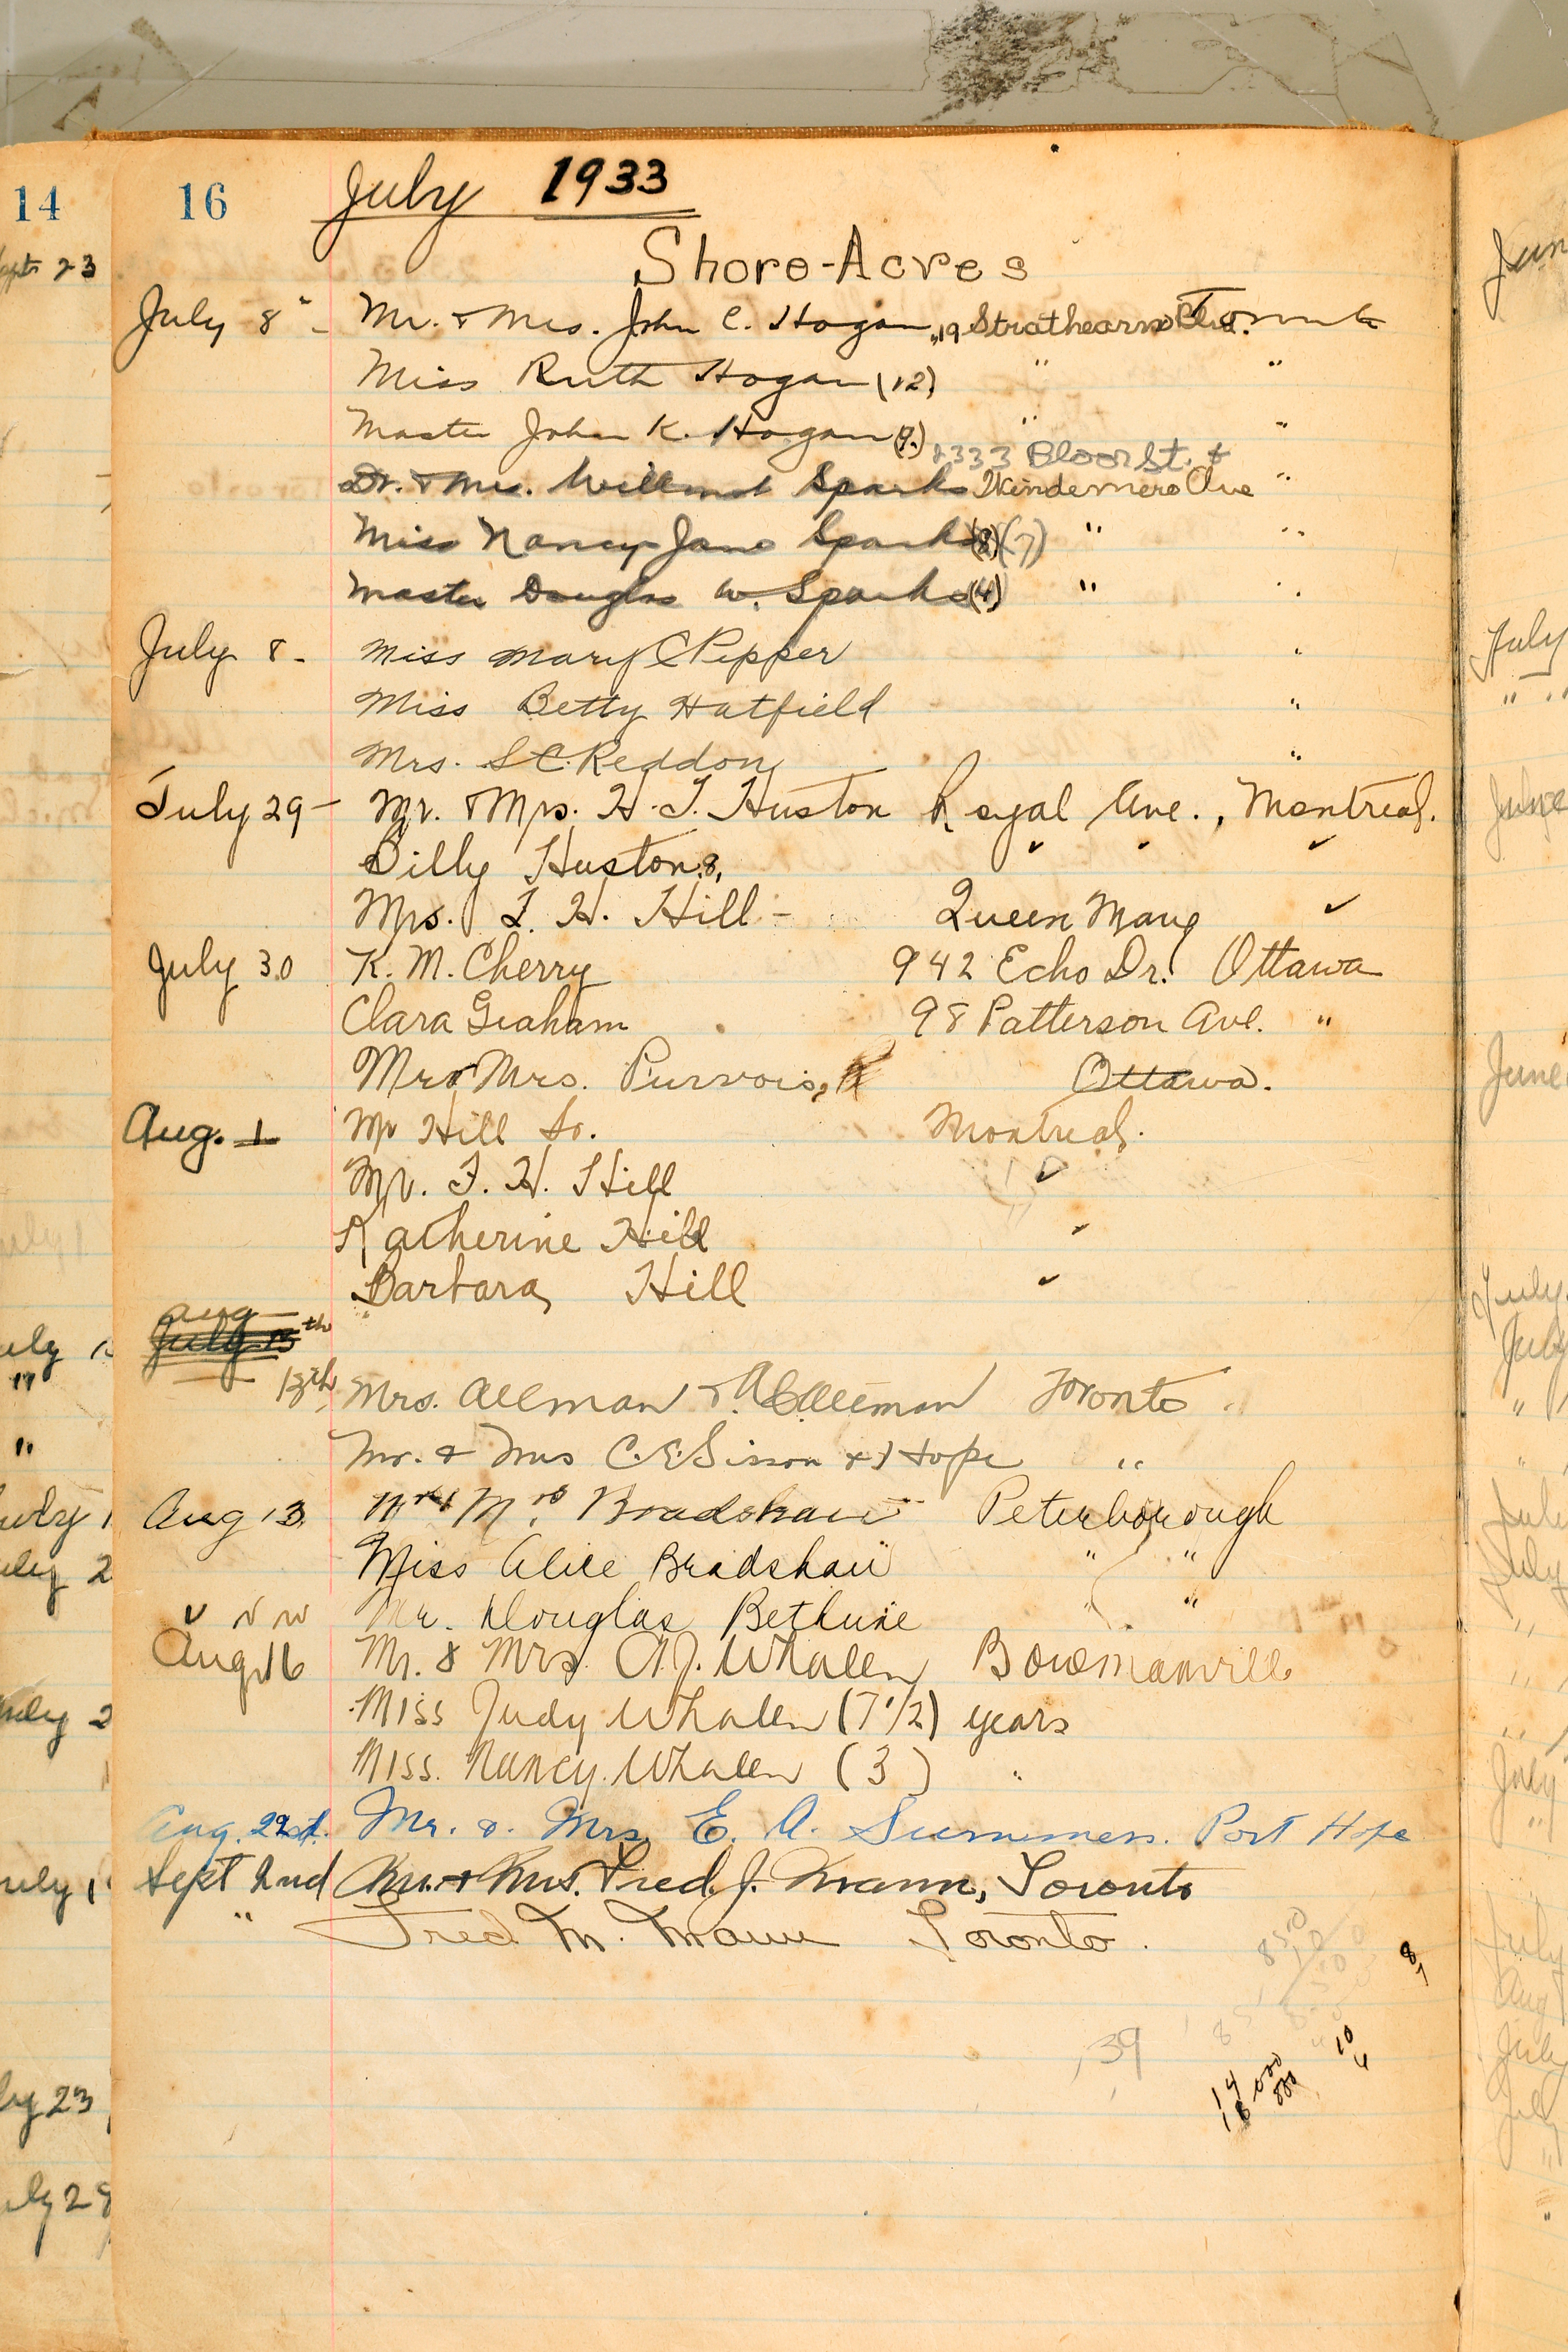 14
16
July 1933
Shore-Acres
July 8" - Mr. & Mrs. John C. Hogan, 19 Strathearn Blvd. Toronto
Miss Ruth Hogan (12) " "
Master John K. Hogan (9.) " "
2333 Bloor St. &
Dr. & Mrs. Willmot Sparks Windermere Ave "
Miss Nancy Jane Sparks (8) (7) " "
Master Douglas W. Sparks (4) " "
July 8 - Miss Mary C Pepper "
Miss Betty Hatfield "
Mrs. S C. Reddon "
July 29 - Mr. & Mrs. H. T. Huston Royal Ave., Montreal.
Billy Huston 8, " " "
Mrs. F. H. Hill - Queen Mary "
July 30 K. M. Cherry 942 Echo Dr. Ottawa
Clara Graham 98 Patterson Ave. "
Mr & Mrs. Ottawa.
Aug. 1 Mr Hill Sr. Montreal.
Mr. F. H. Hill "
Katherine Hill "
Barbara Hill "
Aug
July 13th
13th, Mrs. Alleman & Alleman Toronto
Mr. & Mrs C. E. Sisson & Hope "
Aug 13. Mr & Mrs Bradshaw Peterborough
Miss Alice Bradshaw " "
" " " Mr. Douglas Bethune " "
Aug 16 Mr. & Mrs. A. J. Whalen Bowmanville
Miss Judy Whalen (7 1/2) years
Miss. Nancy. Whalen (3) "
Aug. 22nd. Mr. & Mrs E. A. Summers. Port Hope
Sept 2nd Mr. & Mrs. Fred. J. Mann, Toronto
" Fred M. Mann Toronto.
39